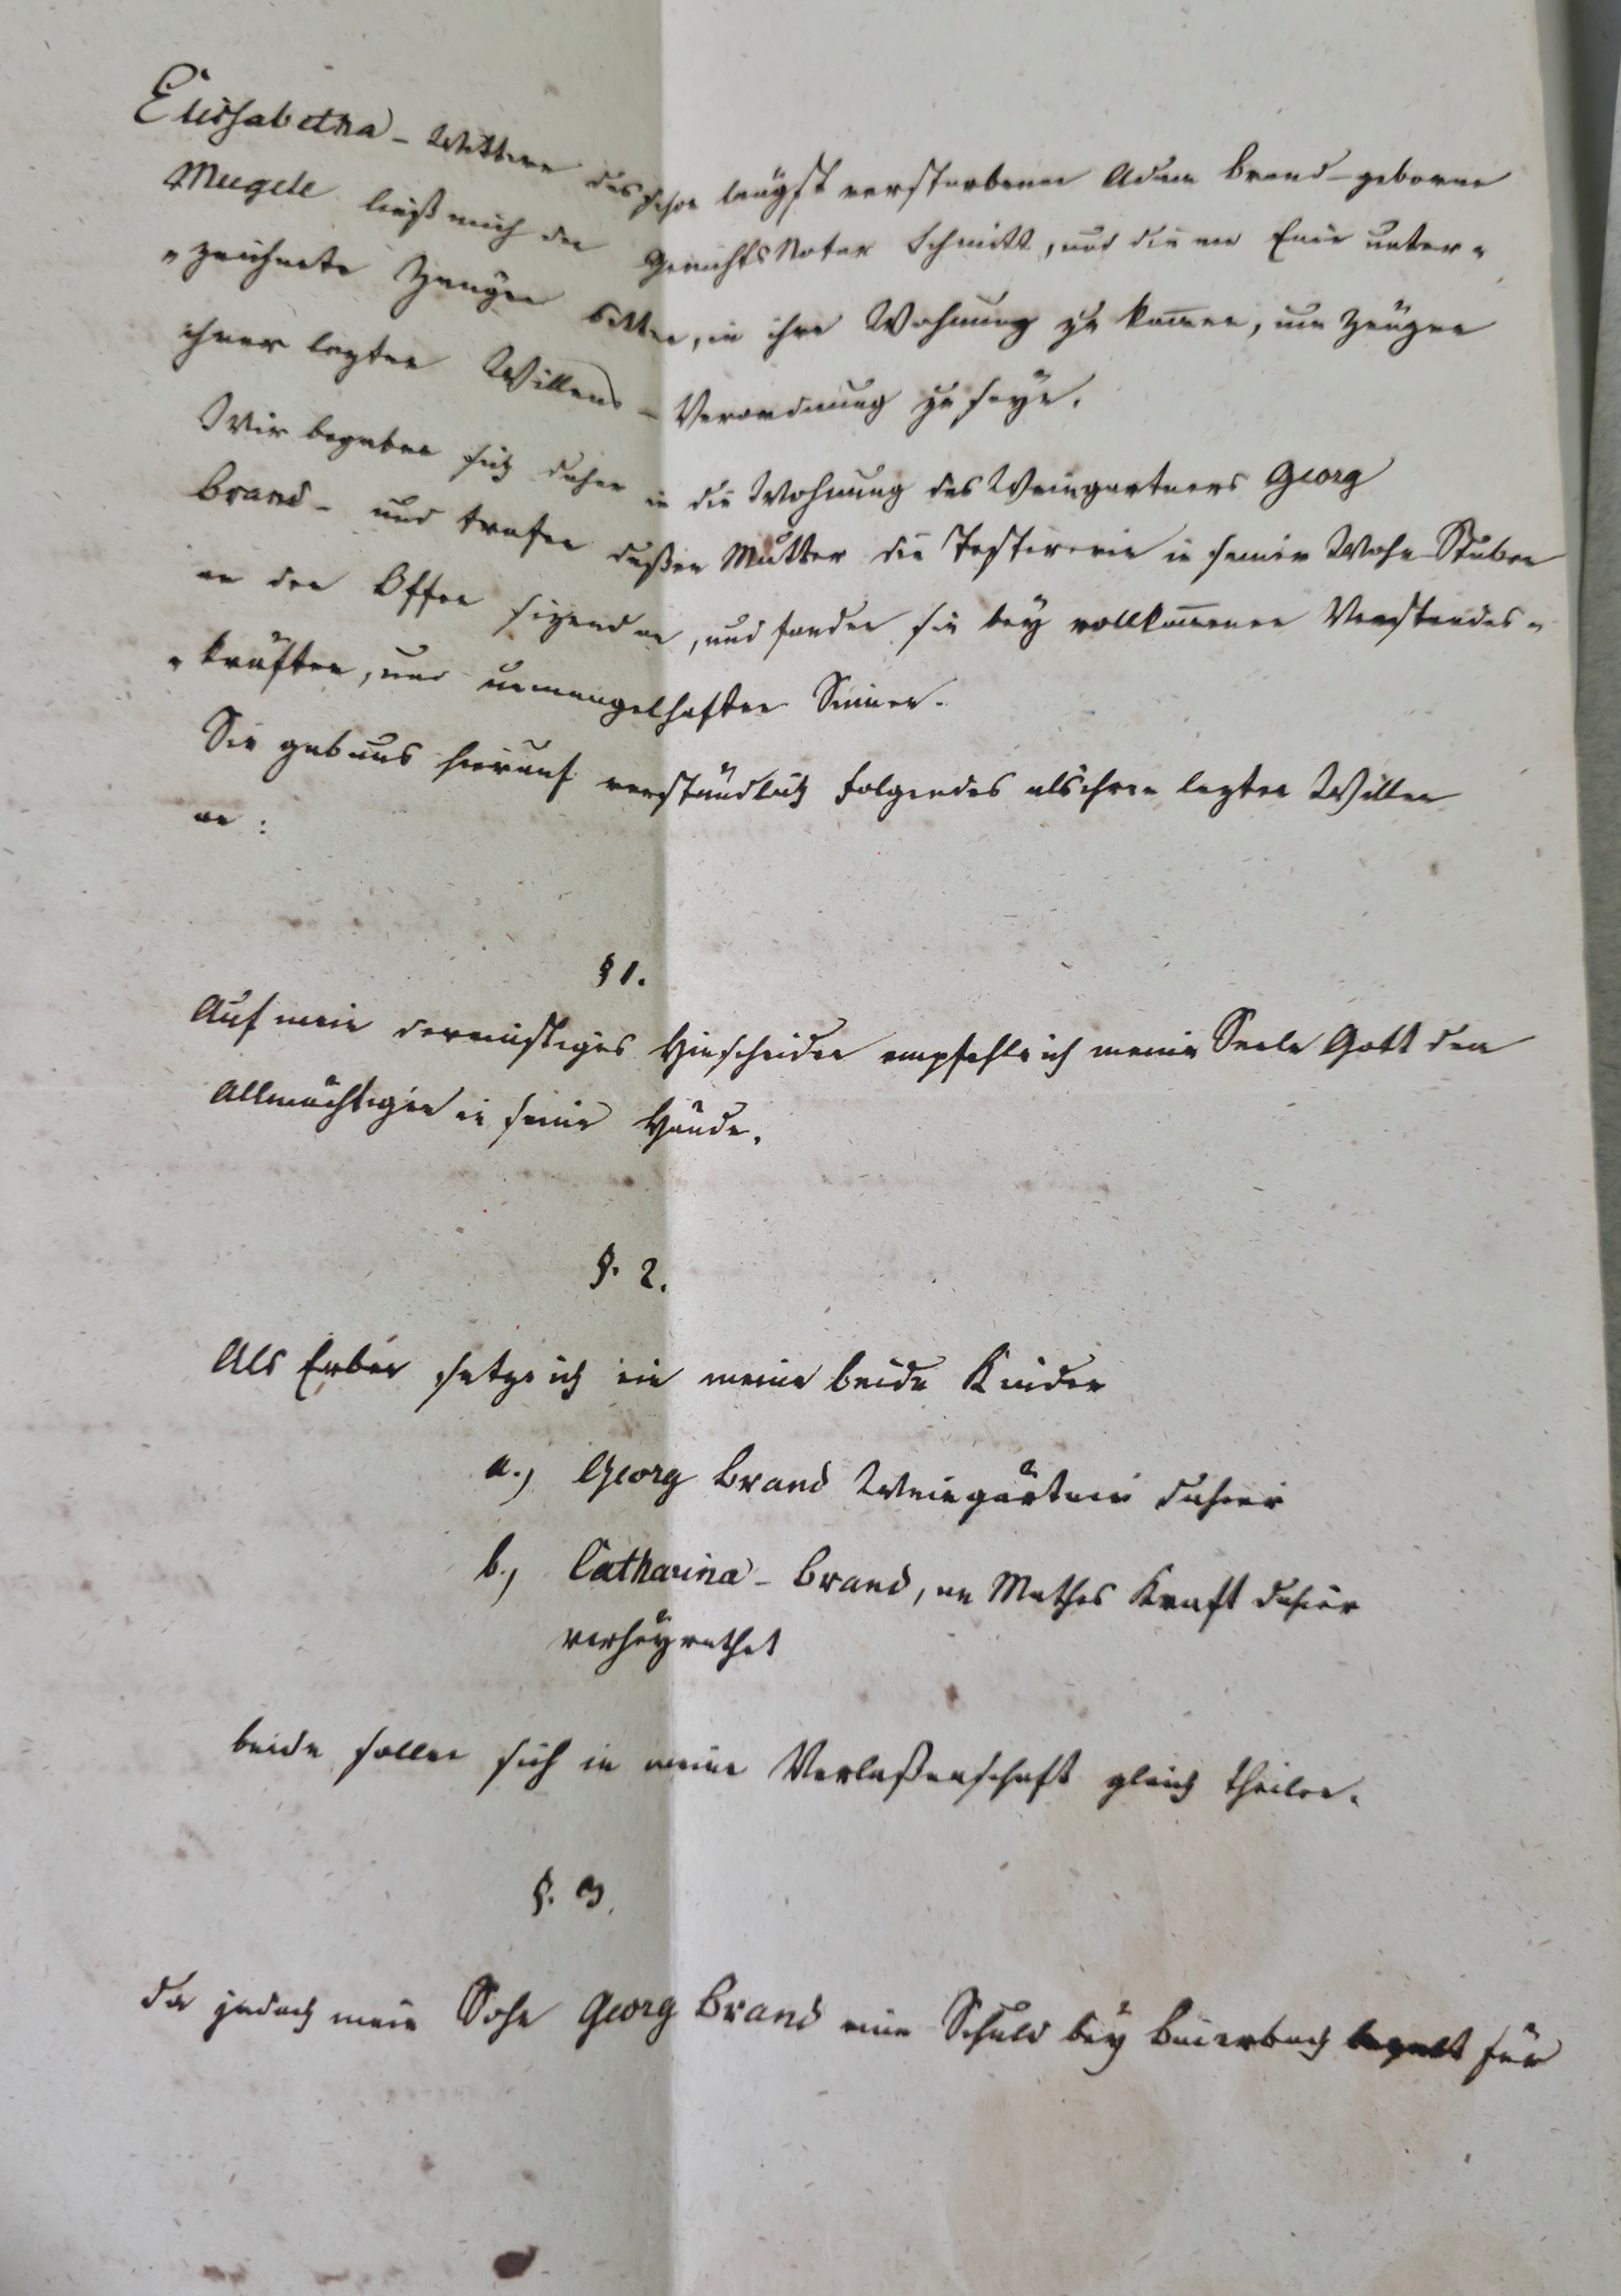 Elisabetha - Wittwe des schon längst verstorbenen Adam Brand - geborne
Mugele ließ mich den GerichtsNotar Schmitt, und die am Ende unter„
„zeichnete Zeugen bitten, in ihre Wohnung zu kom̅en, um Zeugen
ihrer lezten Willens - Verordnung zu seyn.
Wir begaben sich daher in die Wohnung des Weingartners Georg
Brand - und trafen deßen Mutter die Testirerin in seiner Wohn Stuben
an den Offen sizend an, und fanden sie bey vollkom̅enen Verstandes„
„kräften, und unmangelhaften Sinnen.
Sie gab uns hierauf verständlich folgendes als ihren lezten Willen
an :
§ 1.
Auf mein dereinstiges Hinscheiden empfehle ich meine Seele Gott dem
Allmächtigen in seine Hände.
§. 2.
Als Erben setze ich ein meine beide Kinder
a.) Georg Brand Weingärtner dahier
b.) Catharina - Brand, an Mathes Kraft dahier
verheyrathet
beide sollen sich in meine Verlaßenschaft gleich theilen.
§. 3.
da jedoch mein Sohn Georg Brand eine Schuld bey Beierbach für